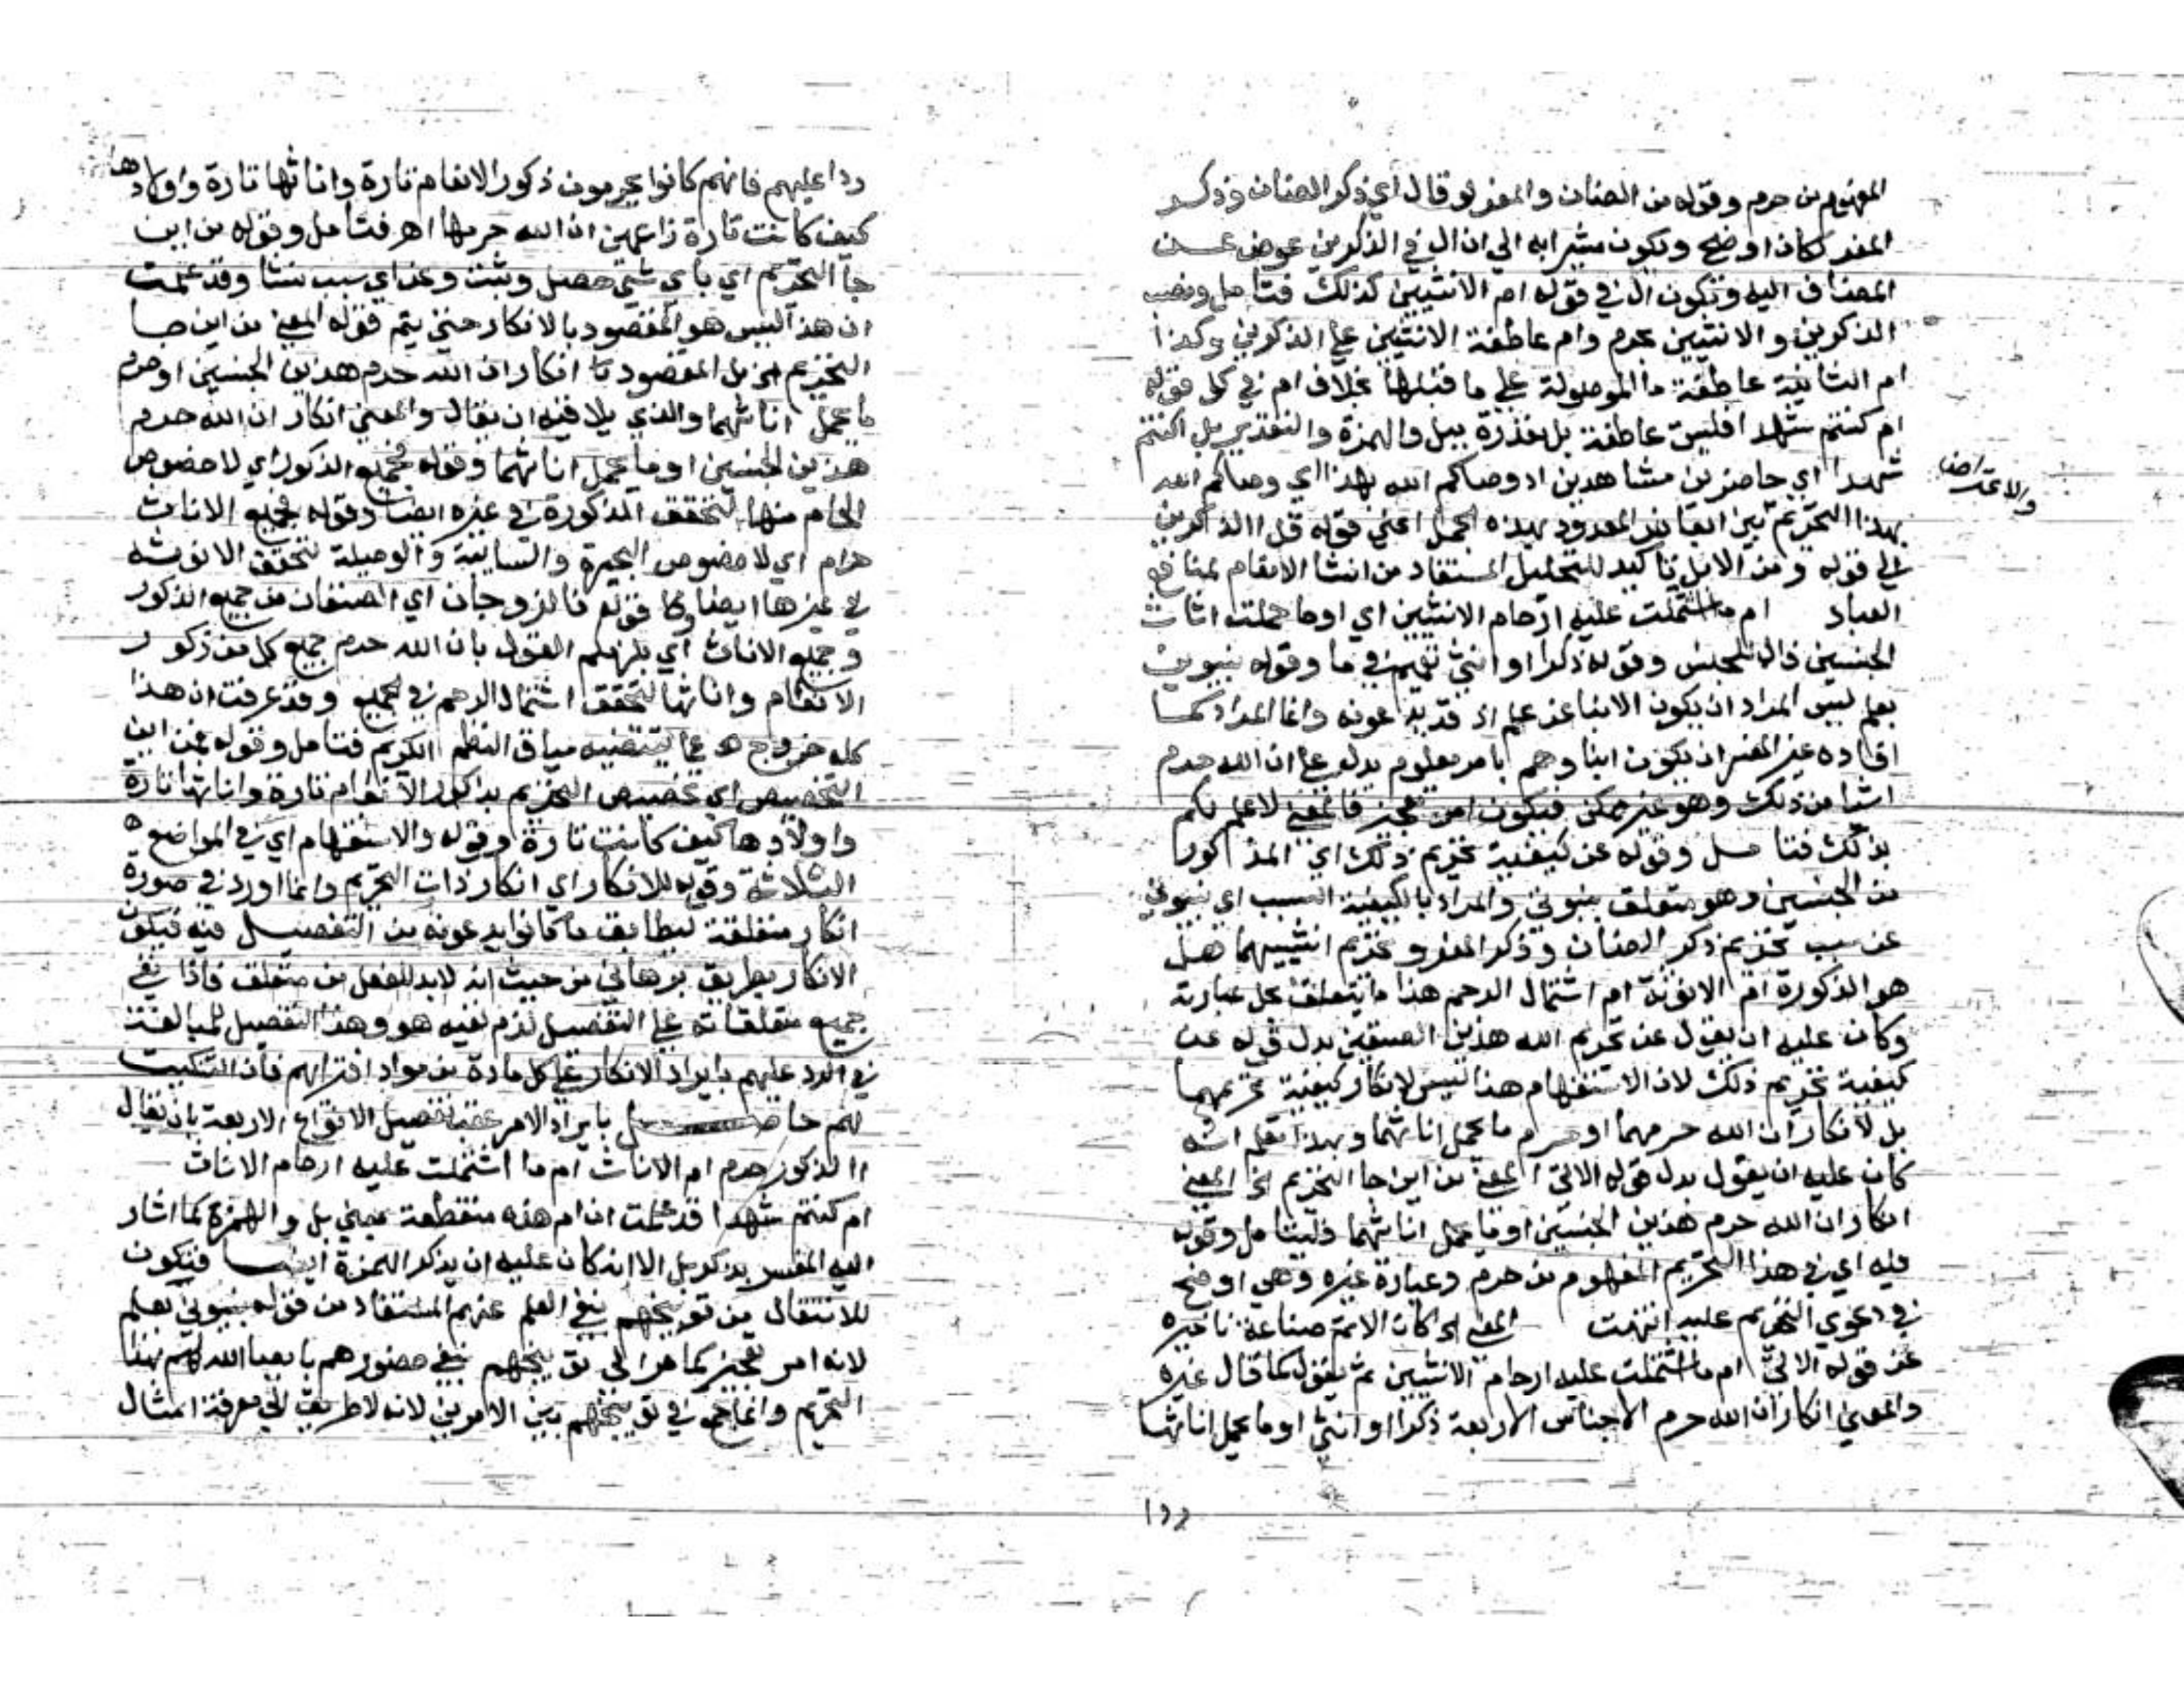 المفهوم من حرم وقوله من الضان والمعز لو قال اي ذكر الضان وذكر
المعز لكان اوضح ويكون مشيرا به الي ان ال في الذكرين عوض عن
المضاف اليه وتكون ال في قوله ام الانثيين كذلك فتامل ونصب
الذكرين والانثيين بحرم وام عاطفة الانثيين علي الذكرين وكذا
ام الثانية عاطفة ما الموصولة علي ما قبلها بخلاف ام في كل قوله
ام كنتم شهدا فليس عاطفة بل مقدرة ببل والهمزة والتقدير بل اكنتم
شهدا اي حاضرين مشاهدين اذ وصاكم الله بهذا اي وصاكم الله
والاعتراض
بهذا التحريم بين المعدود بهذه الجمل اعني قوله قل االذكرين
الي قوله ومن الابل تاكيد للتحليل المستفاد من انشا الانعام لمنافع
العباد ام ما اشتملت عليه ارحام الانثيين اي اوما حملت اناث
الجنسين فال للجنس وقوله ذكرا او انثي تعميم في ما وقوله نبيوني
بعلم ليس المراد ان يكون الانبا عن علم اذ قد يدعونه وانما المراد كما
افاده غير المفسر ان يكون انباوهم بامر معلوم يدل علي ان الله حرم
اشيا من ذلك وهو غير ممكن فيكون امر تعجيز فالمعني لا علم لكم
بذلك فتامل وقوله عن كيفية تحريم ذلك اي المذكور
من الجنسين وهو متعلق بنبوني والمراد بالكيفية السبب اي نبوني
عن سبب تحريم ذكر الضان وذكر المعز وتحريم انثييهما هل
هو الذكورة ام الانوثة ام اشتمال الرحم هذا ما يتعلق بحل عبارته
وكان عليه ان يقول عن تحريم الله هذين الصنفين بدل قوله عن
كيفية تحريم ذلك لان الاستفهام هنا ليس لانكار كيفية تحريمهما
بل لانكار ان الله حرمهما او حرم ما تحمل اناثهما وبهذا تعلم انه
كان عليه ان يقول بدل قوله الاتي المعني من اين جا التحريم الخ المعني
انكار ان الله حرم هذين الجنسين اوما تحمل اناثهما فليتامل وقوله
فيه اي في هذا التحريم المفهوم من حرم وعبارة غيره وهي اوضح
في دعوي التحريم عليه انتهت المعني الخ كان الاتم صناعة تاخيره
عن قوله الاتي ام ما اشتملت عليه ارحام الانثيين ثم يقول كما قال غيره
والمعني انكار ان الله حرم الاجناس الاربعة ذكرا او انثي او ما تحمل اناثها
ردا عليهم فانهم كانوا يحرمون ذكور الانعام تارة واناثها تارة واولادها
كيف كانت تارة زاعمين ان الله حرمها اهـ فتامل وقوله من اين
جا التحريم اي باي شي حصل وثبت وعن اي سبب نشا وقد علمت
ان هذا ليس هو المقصود بالانكار حتي يتم قوله المعني من اين جا
التحريم الخ بل المقصود انكار ان الله حرم هذين الجنسين او حرم
ما تحمل اناثهما والذي يلاقيه ان يقال والمعني انكار ان الله حرم
هذين الجنسين او ما تحمل اناثهما وقوله فجميع الذكور اي لا خصوص
الحام منها لتحقق الذكورة في غيره ايضا وقوله فجميع الاناث
حرام اي لا خصوص البحيرة والسايبة والوصيلة لتحقق الانوثة
في غيرها ايضا وقوله فالزوجان اي الصنفان من جميع الذكور
وجميع الاناث اي يلزمكم القول بان الله حرم جميع كل من ذكور
الانعام واناثها لتحقق اشتمال الرحم في الجميع وقد عرفت ان هذا
كله خروج عما يقتضيه سياق النظم الكريم فتامل وقوله فمن اين
التخصيص اي تخصيص التحريم بذكور الانعام تارة واناثها تارة
واولادها كيف كانت تارة وقوله والاستفهام اي في المواضع
الثلاثة وقوله للانكار اي انكار ذات التحريم وانما اورد في صورة
انكار متعلقة ليطابق ما كانوا يدعونه من التفصيل فيه فيكون
الانكار بطريق برهاني من حيث انه لا بد للفعل من متعلق فاذا نفي
جميع متعلقاته علي التفصيل لزم نفيه هو وهذا التفصيل للمبالغة
في الرد عليهم بايراد الانكار علي كل مادة من مواد افترائهم فان التبكيت
لهم حاصل بايراد الامر عقب تفصيل الانواع الاربعة بان يقال
االذكور حرم ام الاناث ام ما اشتملت عليه ارحام الاناث
ام كنتم شهدا قد علمت ان ام هذه منقطعة بمعني بل والهمزة كما اشار
اليه المفسر بذكر بل الا انه كان عليه ان يذكر الهمزة ايضا فتكون
للانتقال من توبيخهم بنفي العلم عنهم المستفاد من قوله نبيوني بعلم
لانه امر تعجيز كما مر الي توبيخهم بنفي حضورهم ايصا الله لهم بهذا
التحريم وانما في توبيخهم بين الامرين لانه لا طريق الي معرفة امثال
١٣٢